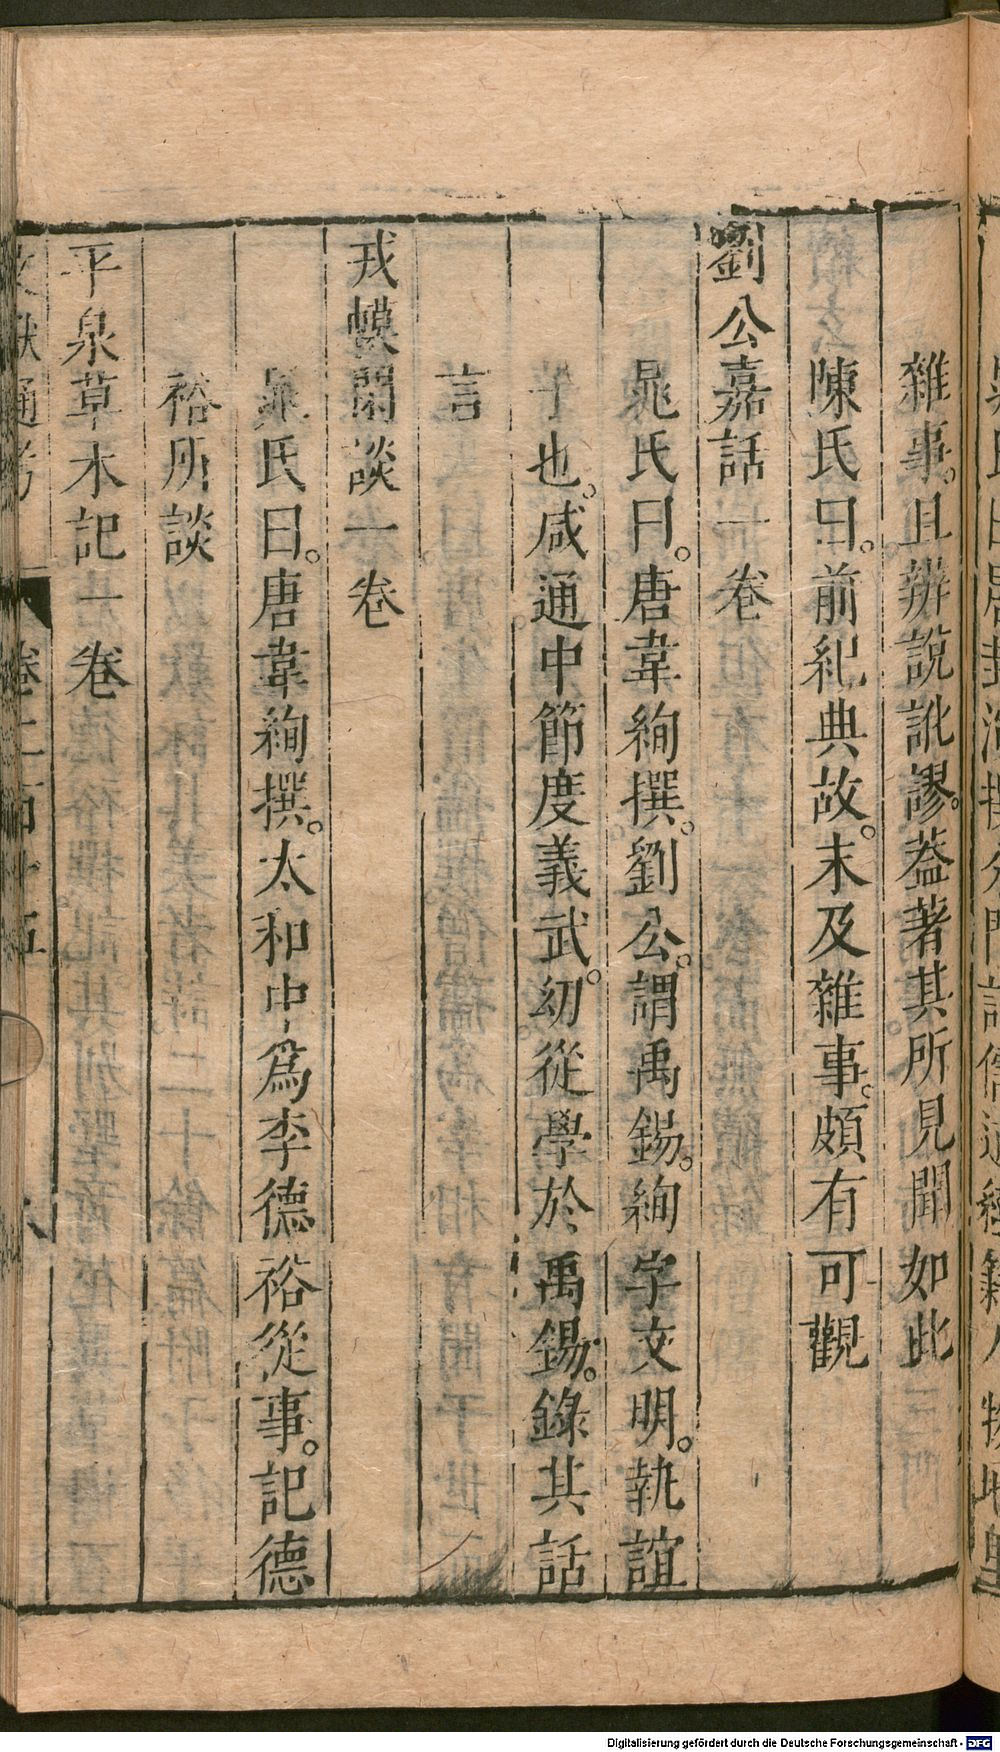 雜事。且辨說訛謬。蓋著其所見聞如此
陳氏曰。前紀典故。末及雜事。頗有可觀
劉公嘉話一卷
晁氏曰。唐韋絢撰。劉公。謂禹錫。絢字文明。執誼
子也。咸通中節度義武。幼從學於禹錫。錄其話
言
戎幙閒談一卷
晁氏曰。唐韋絢撰。太和中為李德裕從事。記德
裕所談
平泉草木記一卷
文獻通考 卷二百十五 八
Digitalisierung gefördert durch die Deutsche Forschungsgemeinschaft - DFG